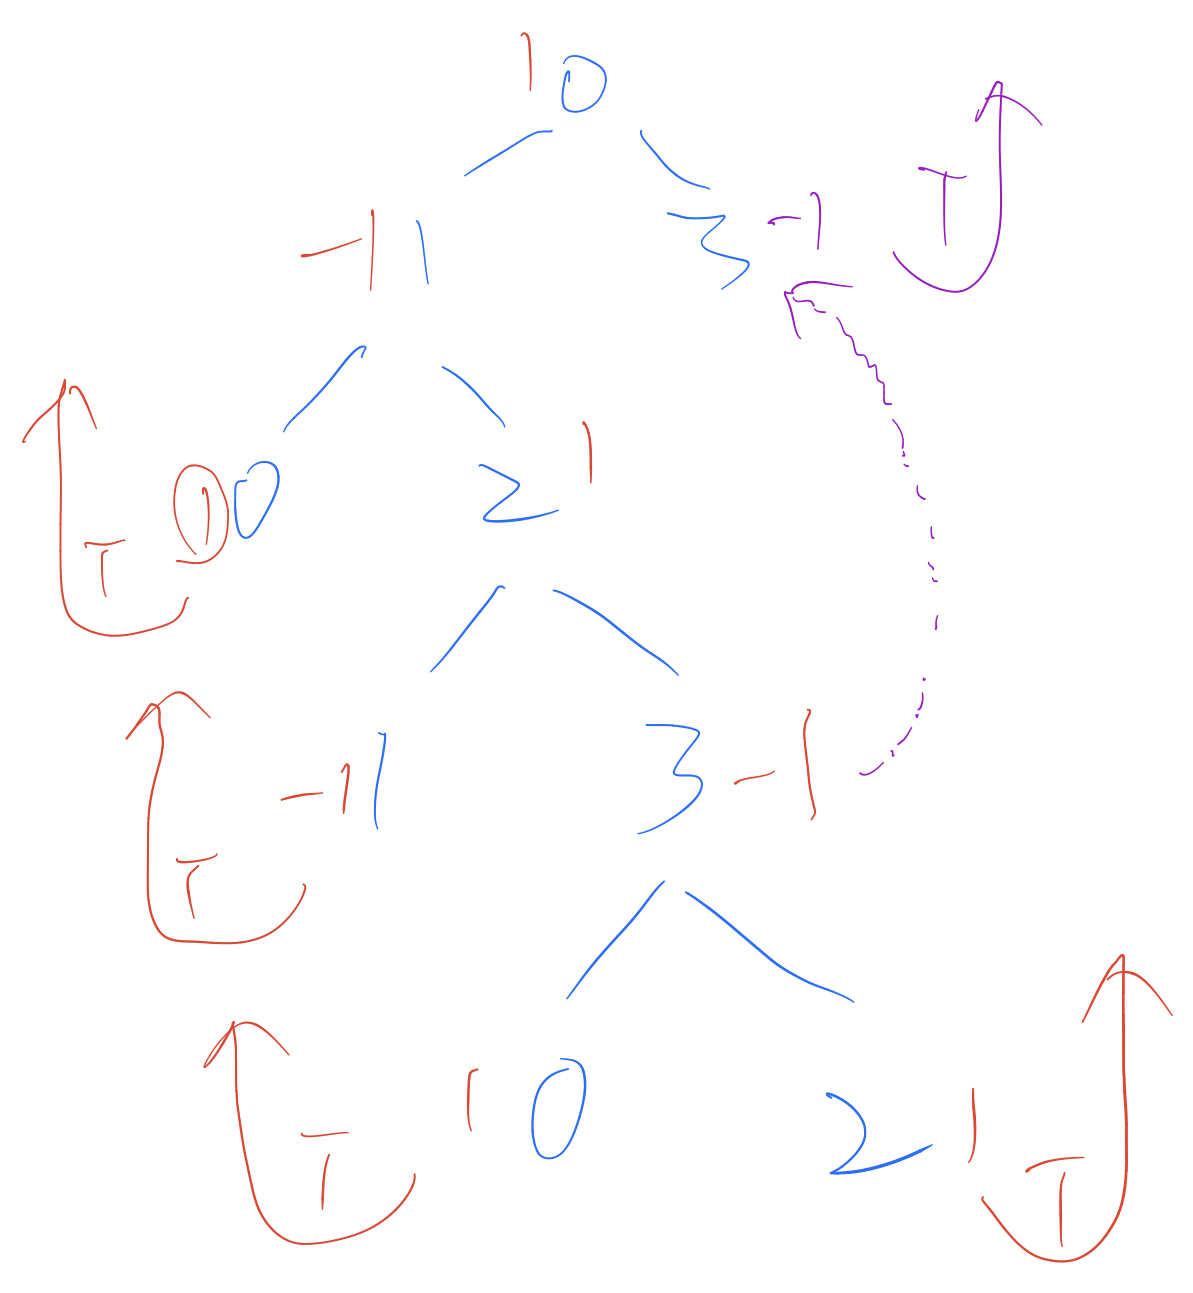 1 0
-1 1 3 -1 T
T 1 0 2 1
T -1 1 3 -1
T 1 0 2 1 T